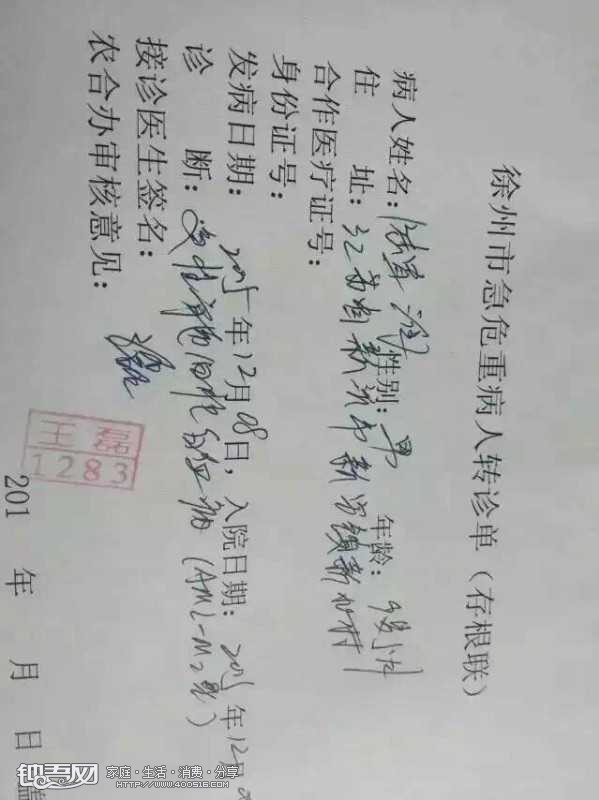 徐州市急危重病人转诊单（存根联）
病人姓名：性别：男 年龄：9岁
住 址：江苏省新沂市新 镇新 村
合作医疗证号：
身份证号：
发病日期：2015年12月08日，入院日期：2015年12月
诊 断：急性 细胞白血病（AML-M2型）
接诊医生签名：
农合办审核意见：
王磊
1283
201 年 月 日
钟吾网
家庭·生活·消费·分享
www.400516.com